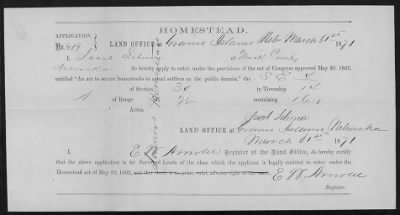 HOMESTEAD.
APPLICATION
No. 419
LAND OFFICE at Grand Island Neb March 31st 1871
I, Jacob
do hereby apply to enter, under the provisions of the act of Congress approved May 20, 1862,
entitled "An act to secure homesteads to actual settlers on the public domain," the S E 4
of Section 34 in Township 14
N of Range containing 160
Acres.
Jacob
LAND OFFICE at Grand Island Nebraska
March 31st 1871
I, E W Arnold Register of the Land Office, do hereby certify
that the above application is for Surveyed Lands of the class which the applicant is legally entitled to enter under the
Homestead act of May 20, 1862, and that there is no prior, valid, adverse right to the same.
E W Arnold
Register.